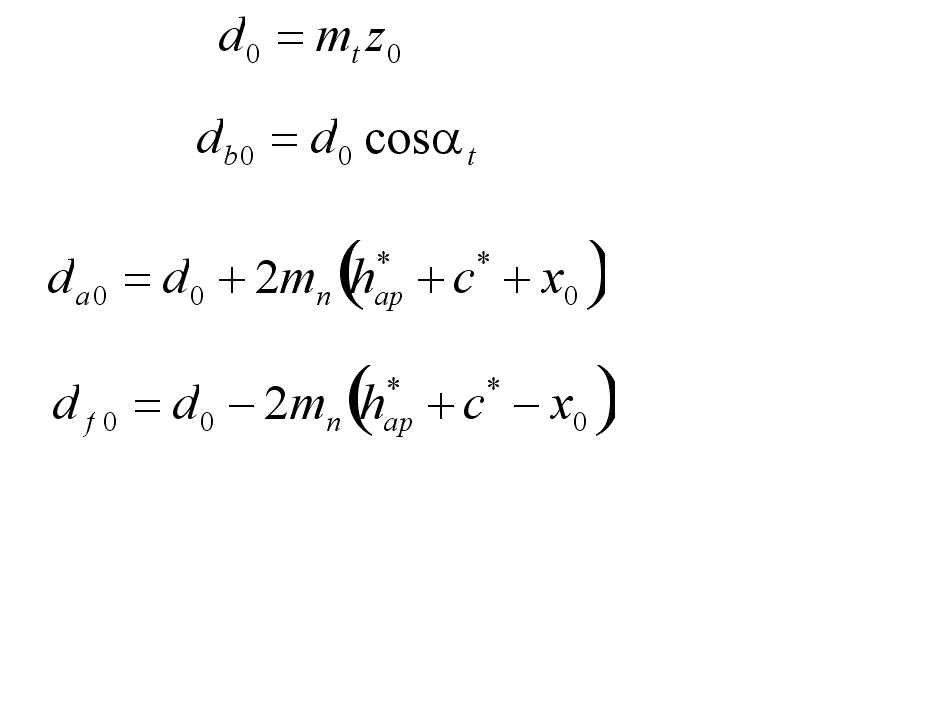 d₀ = mₜz₀
d_b0 = d₀ cosαₜ
d_a0 = d₀ + 2mₙ(h*_ap + c* + x₀)
d_f0 = d₀ − 2mₙ(h*_ap + c* − x₀)